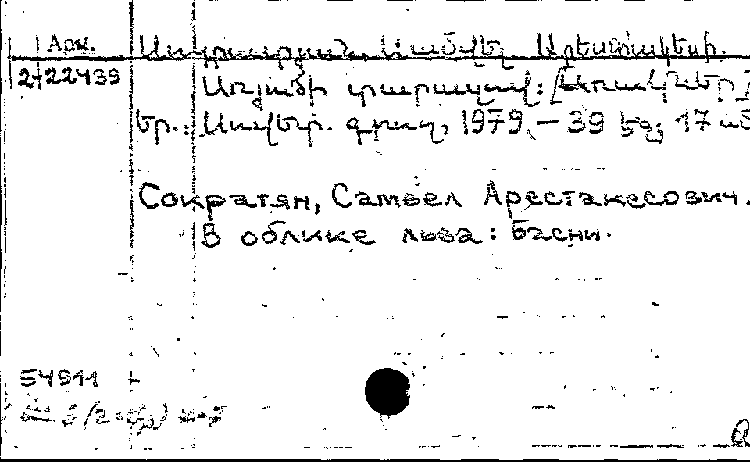 Арм.
2-22439
Սոկրատյան, Սամվել Արեստակեսի.
Առյուծի տարազով: [Առակներ]
Եր.: Սովետ. գրող, 1979. — 39 էջ; 17 սմ
Сократян, Самвел Арестакесович.
В облике льва: Басни.
54911